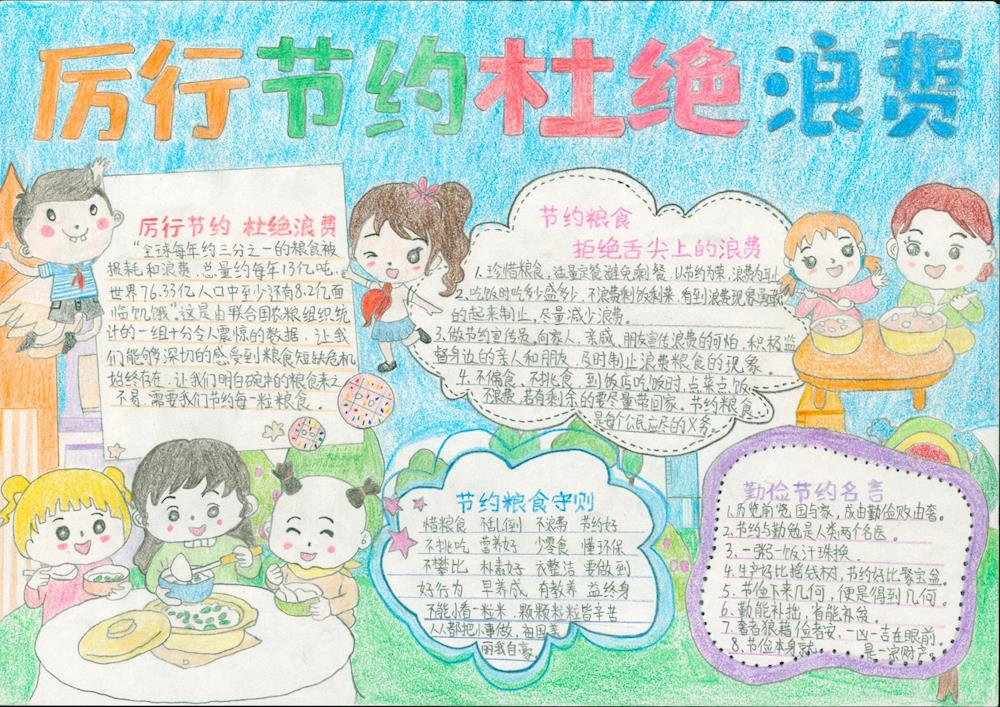 厉行节约杜绝浪费
厉行节约 杜绝浪费
“全球每年约三分之一的粮食被
损耗和浪费,总量约每年13亿吨.
世界76.33亿人口中至少还有8.2亿面
临饥饿”这是由联合国农粮组织统
计的一组十分令人震惊的数据,让我
们能够深切的感受到粮食短缺危机
始终存在,让我们明白碗中的粮食来之
不易,需要我们节约每一粒粮食。
节约粮食
拒绝舌尖上的浪费
1.珍惜粮食,适量定餐,避免剩餐,以节约为荣,浪费为耻
2.吃饭时吃多少盛多少,不浪费剩饭剩菜,看到浪费现象勇敢
的起来制止,尽量减少浪费。
3.做节约宣传员,向家人、亲戚、朋友宣传浪费的可怕,积极监
督身边的亲人和朋友,及时制止浪费粮食的现象。
4.不偏食,不挑食,到饭店吃饭时,点菜点饭
不浪费.若有剩余的要尽量带回家。节约粮食
是每个公民应尽的义务
节约粮食守则
惜粮食 不乱倒 不浪费 节约好
不挑吃 营养好 少零食 懂环保
不攀比 朴素好 衣整洁 要做到
好行为 早养成 有教养 益终身
不能小看一粒米,颗颗粒粒皆辛苦
人人都把小事做,祖国美
丽我自豪
勤俭节约名言
1.历览前贤国与家,成由勤俭败由奢。
2.节约与勤勉是人类两个名医。
3.一粥一饭汗珠换。
4.生产好比摇钱树,节约好比聚宝盆。
5.节俭下来几何,便是得到几何。
6.勤能补拙,省能补贫。
7.奢者狼藉俭者安,一凶一吉在眼前
8.节俭本身就 是一宗财产